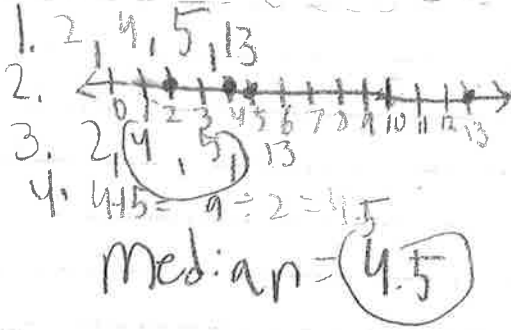 1. 2, 4, 5, 13
2.
0 1 2 3 4 5 6 7 8 9 10 11 12 13
3. 2, 4, 5, 13
4. 4+5= 9÷2=4.5
Median=4.5